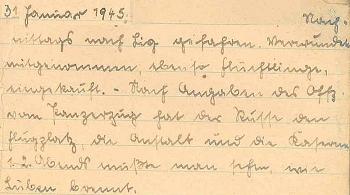 31 Januar 1945. Nach-
mittags nach Lig gefahren. Verwundete
mitgenommen, ebenso Flüchtlinge,
eingekauft. - Nach Angaben des Offz.
vom Panzerzug hat der Russe den
Flugplatz, die Anstalt und die Kaserne
Abends mußte man sehen, wie
Lüben brennt.